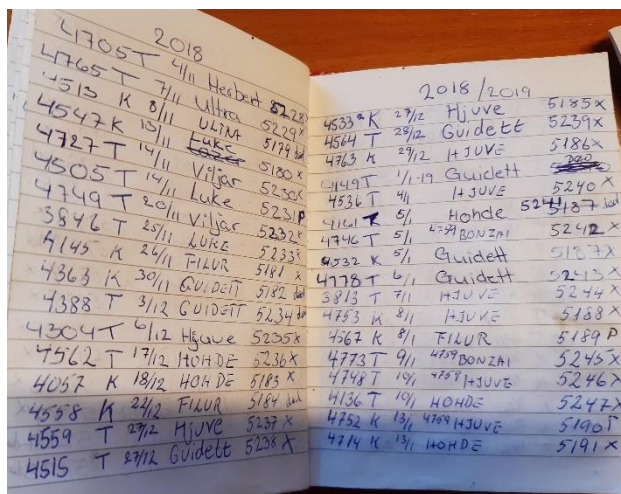 2018
4705 T 4/11 Herbert 5228X
4765 T 7/11 Ultra 5229X
4513 K 8/11 ULTRA 5179 død
4547 K 10/11 Luke 5180 X
4727 T 14/11 Viljar 5230X
4505 T 14/11 Luke 5231P
4749 T 20/11 Viljar 5232X
3846 T 25/11 LUKE 5233X
4145 K 26/11 FILUR 5181 X
4363 K 30/11 GUIDETT 5182 død
4388 T 3/12 GUIDETT 5234 død
4304 T 6/12 Hjuve 5235X
4562 T 17/12 HOHDE 5236X
4057 K 18/12 HOHDE 5183 X
4558 K 22/12 FILUR 5184 død
4559 T 27/12 Hjuve 5237 X
4515 T 27/12 Guidett 5238 X
2018/2019
4533 K 27/12 Hjuve 5185X
4564 T 28/12 Guidett 5239X
4763 K 29/12 HJUVE 5186X
4149 T 1/1-19 Guidett DØD
4536 T 4/1 HJUVE 5240 X
4161 5/1 Hohde 5241 død
4746 T 5/1 4759 BONZAI 5242 X
4532 K 5/1 Guidett 5187X
4778 T 6/1 Guidett 5243X
3813 T 7/1 HJUVE 5244 X
4753 K 8/1 HJUVE 5188 X
4567 K 8/1 FILUR 5189 P
4773 T 9/1 4759 BONZAI 5245X
4748 T 10/1 4759 HJUVE 5246X
4136 T 10/1 HOHDE 5247X
4752 K 13/1 4759 HJUVE 5190T
4714 K 13/1 HOHDE 5191 X